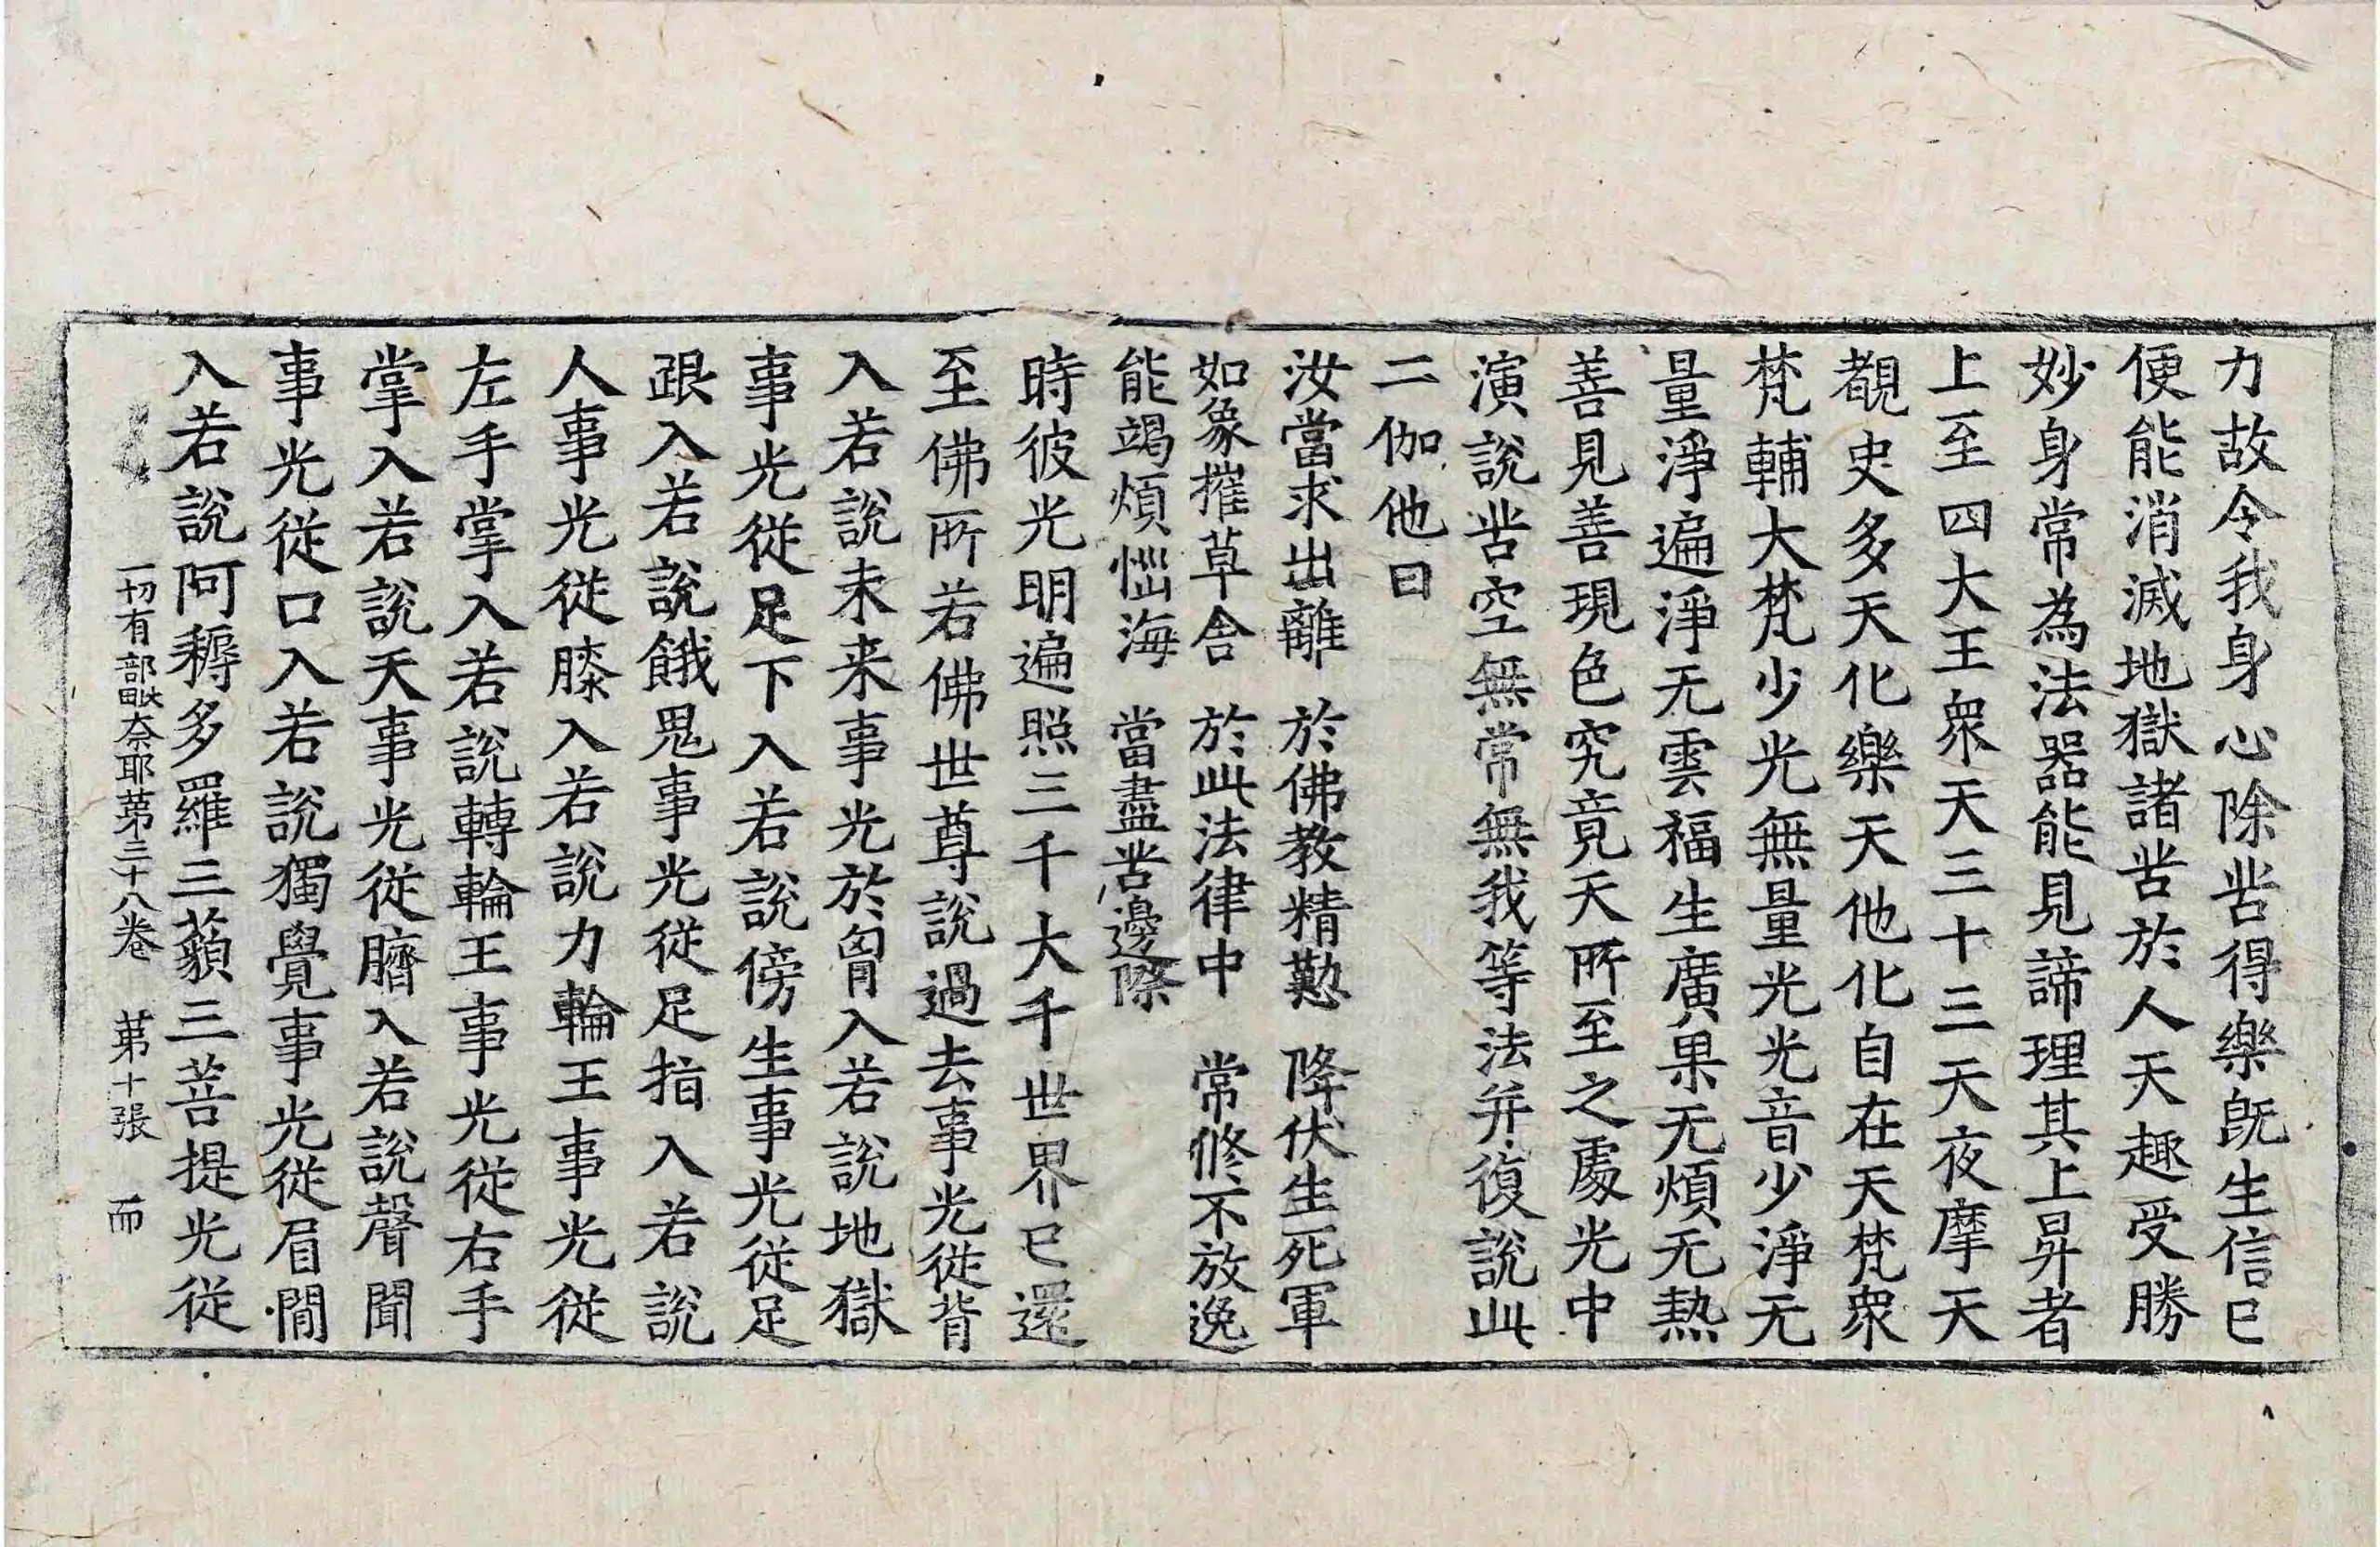 力故令我身心除苦得樂旣生信已
便能消滅地獄諸苦於人天趣受勝
妙身常為法器能見諦理其上昇者
上至四大王衆天三十三天夜摩天
覩史多天化樂天他化自在天梵衆
梵輔大梵少光無量光光音少淨无
量淨遍淨无雲福生廣果无煩无熱
善見善現色究竟天所至之處光中
演說苦空無常無我等法并復說此
二伽他曰
汝當求出離　於佛教精懃　降伏生死軍
如象摧草舍　於此法律中　常修不放逸
能竭煩惱海　當盡苦邊際
時彼光明遍照三千大千世界已還
至佛所若佛世尊說過去事光從背
入若說未来事光於胷入若說地獄
事光從足下入若說傍生事光從足
跟入若說餓鬼事光從足指入若說
人事光從膝入若說力輪王事光從
左手掌入若說轉輪王事光從右手
掌入若說天事光從臍入若說聲聞
事光從口入若說獨覺事光從眉間
入若說阿耨多羅三藐三菩提光從
一切有部毗奈耶第三十八卷　第十張　而